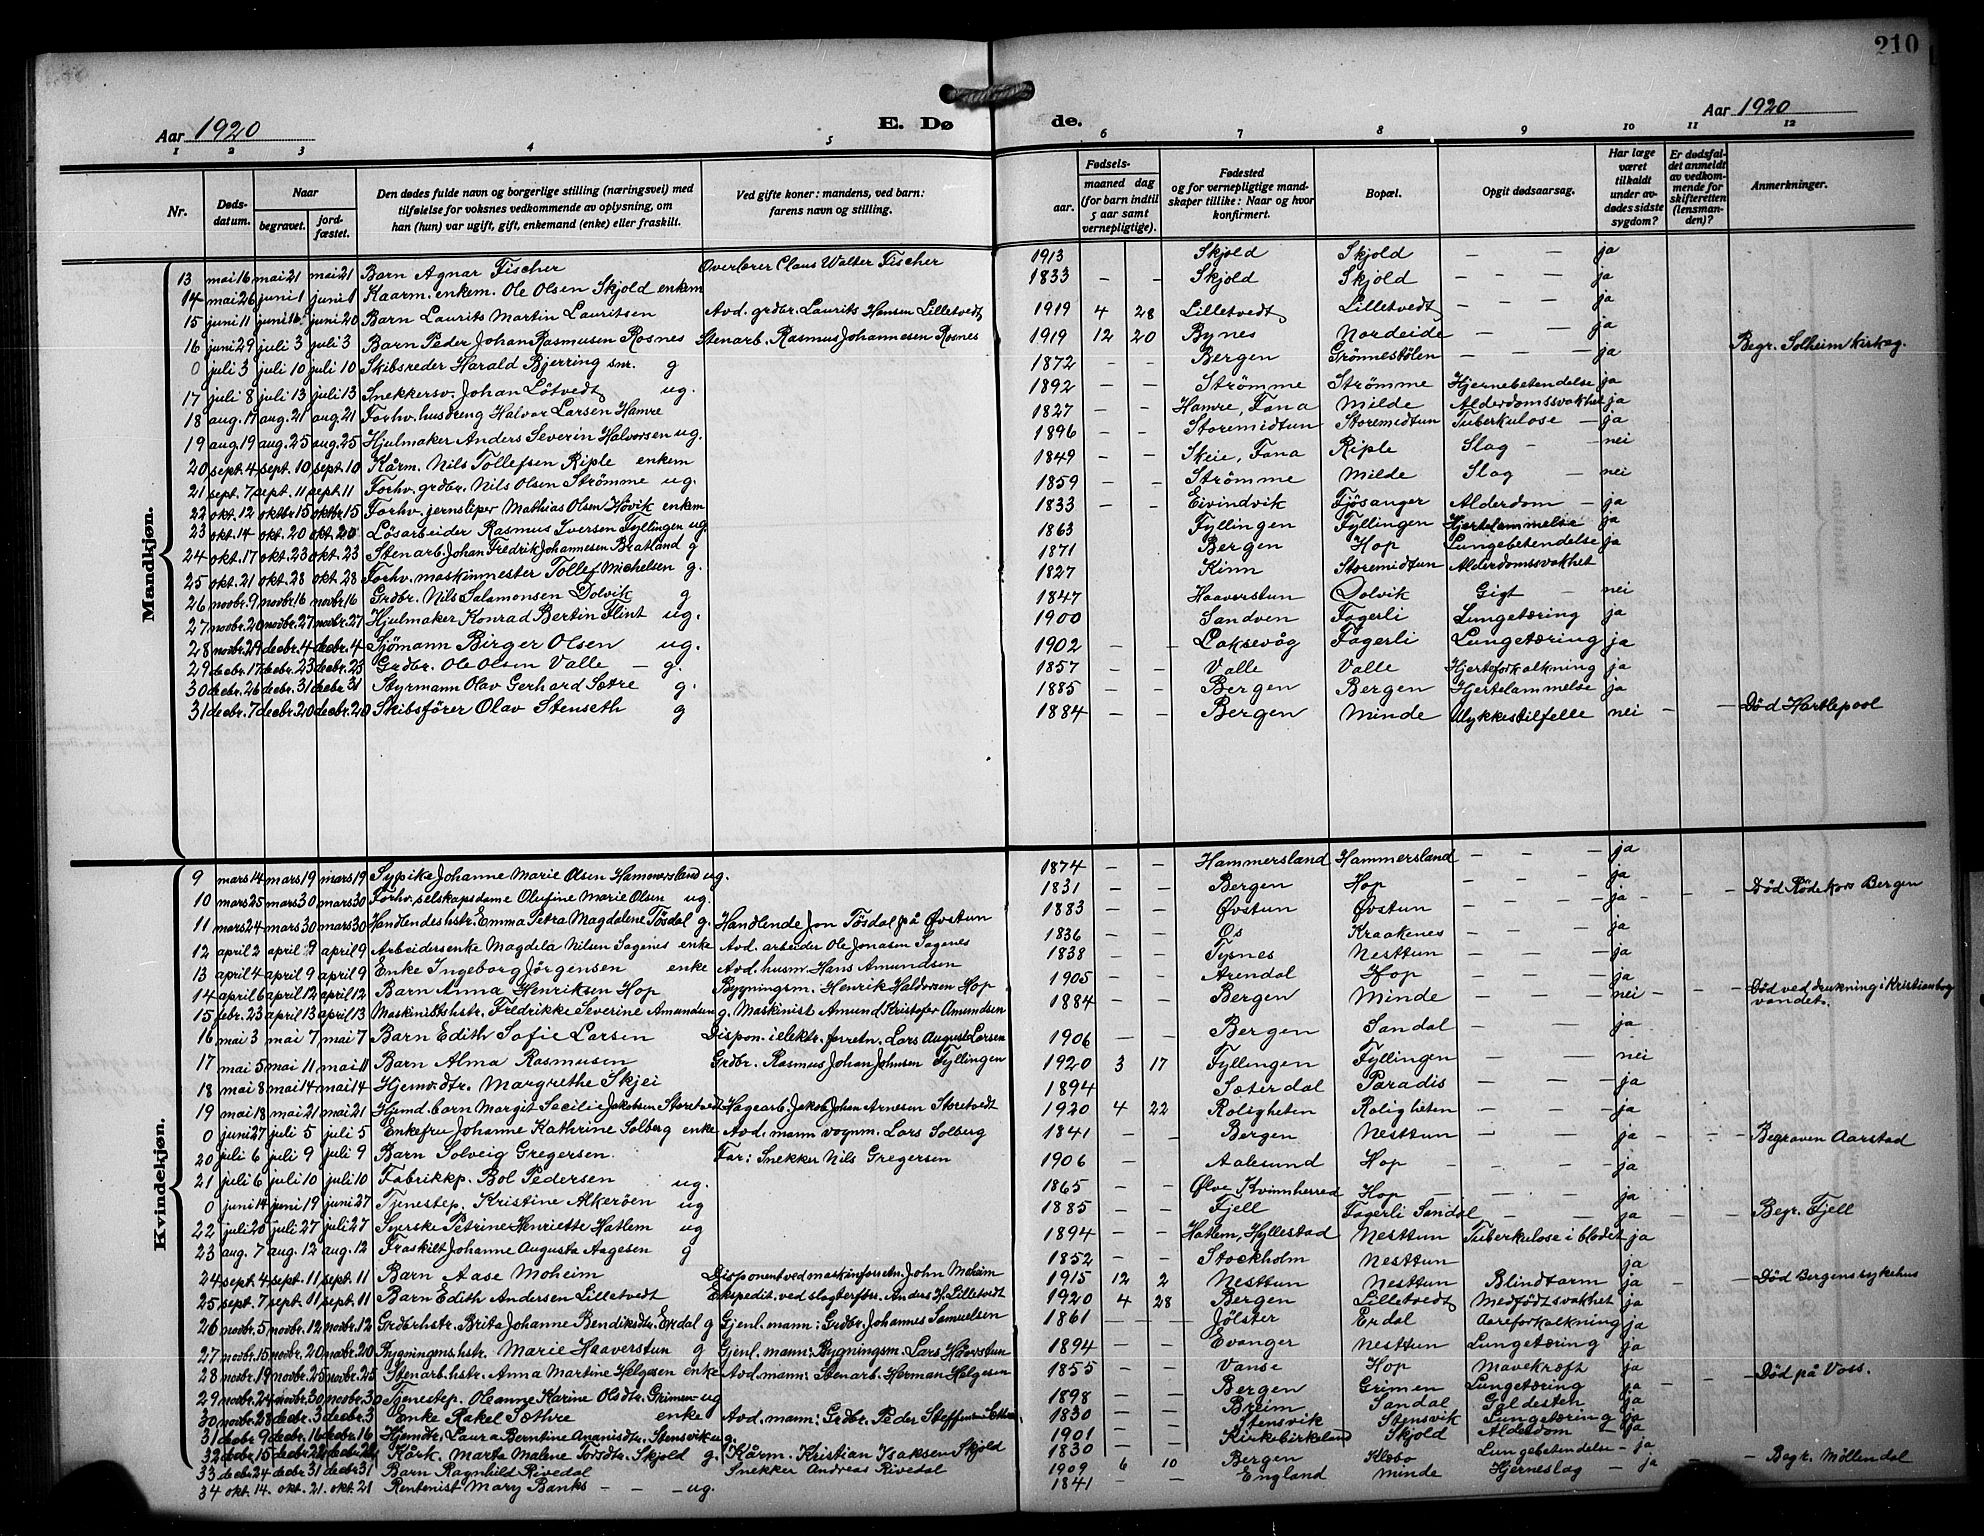 210
Aar 1920 E. Dø de. Aar 1920
1 2 3 4 5 6 7 8 9 10 11 12
Nr. Døds-datum. Naar begravet. jord-fæstet. Den dødes fulde navn og borgerlige stilling (næringsvei) med tilføielse for voksnes vedkommende av oplysning, om han (hun) var ugift, gift, enkemand (enke) eller fraskilt. Ved gifte koner: mandens, ved barn: farens navn og stilling. Fødsels- aar. maaned dag (for barn indtil 5 aar samt vernepligtige). Fødested og for vernepligtige mandskaper tillike: Naar og hvor konfirmert. Bopæl. Opgit dødsaarsag. Har læge været tilkaldt under avdødes sidste sygdom? Er dødsfaldet anmeldt av vedkommende for skifteretten (lensmanden)? Anmerkninger.
Mandkjøn.
13 mai 16 mai 21 mai 21 Barn Agnar Fischer Overlærer Claus Walter Fischer 1913 Skjold Skjold — — — ja
14 mai 26 juni 1 juni 1 Kaarm. enkem. Ole Olsen Skjold enkem 1833 — — Skjold Skjold — — — ja
15 juni 11 juni 16 juni 20 Barn Laurits Martin Lauritsen Avd. grdbr. Laurits Hansen Lilletvedt 1919 4 28 Lilletvedt Lilletvedt — — — ja
16 juni 29 juli 3 juli 3 Barn Peder Johan Rasmussen Rosnes Stenarb. Rasmus Johannesen Rosnes 1919 12 20 Bynes Nordeide — — — ja
0 juli 3 juli 10 juli 10 Skibsreder Harald Bjerring snr. g 1872 — — Bergen Grönnestölen — — — ja Begr. Solheim kirkeg.
17 juli 8 juli 13 juli 13 Snekkersv. Johan Lötvedt ug. 1892 — — Strömme Strömme Hjernebetendelse ja
18 aug. 17 aug. 21 aug. 21 Forhv. husdreng Halvor Larsen Hamre 1827 — — Hamre, Fana Milde Alderdomssvakhet ja
19 aug. 19 aug. 25 aug. 25 Hjulmaker Anders Severin Halvorsen ug. 1896 — — Storemidtun Storemidtun Tuberkulose — ja
20 sept. 4 sept. 10 sept. 10 Kårm. Nils Tollefsen Riple enkem 1849 — — Skeie, Fana Riple Slag — — nei
21 sept. 7 sept. 11 sept. 11 Forhv. grdbr. Nils Olsen Strömme ug. 1859 — — Strömme Milde Slag — nei
22 okt. 12 oktbr. 15 oktbr. 15 Forhv. jernsliper Mathias Olsen Hövik enkem 1833 — — Eivindvik Fjösanger Alderdom — ja
23 okt. 14 okt. 20 okt. 20 Lösarbeider Rasmus Iversen Fyllingen ug. 1863 — — Fyllingen Fyllingen Hjertelammelse ja
24 okt. 17 okt. 23 okt. 23 Stenarb. Johan Fredrik Johannesen Bratland g 1871 — — Bergen Hop Lungebetendelse ja
25 okt. 21 okt. 28 okt. 28 Forhv. maskinmester Tollef Michelsen g. 1827 — — Kinn Storemidtun Alderdomssvakhet
26 novbr. 9 novbr. 16 novbr. 16 Grdbr. Nils Salamonsen Dolvik g 1847 — — Haaverstun Dolvik Gigt — nei
27 novbr. 20 novbr. 27 novbr. 27 Hjulmaker Konrad Bertin Flint ug. 1900 — — Sandven Fagerli Lungetæring ja
28 novbr. 29 decbr. 4 decbr. 4 Sjömann Birger Olsen ug. 1902 — — Laksevåg Fagerli Lungetæring ja
29 decbr. 17 decbr. 23 decbr. 23 Grdbr. Ole Olsen Valle — g. 1857 — — Valle Valle Hjerteforkalkning ja
30 decbr. 26 decbr. 31 decbr. 31 Styrmann Olav Gerhard Sætre g. 1885 — — Bergen Bergen Hjertelammelse ja
31 decbr. 7 decbr. 20 decbr. 20 Skibsförer Olav Stenseth g 1884 — — Bergen Minde Ulykkestilfelle nei — — Död Hartlepool
Kvindekjøn.
9 mars 14 mars 19 mars 19 Sypike Johanne Marie Olsen Hammersland ug. 1874 — — Hammersland Hammersland — — — ja
10 mars 25 mars 30 mars 30 Forhv. selskapsdame Olufine Marie Olsen ug. 1831 — — Bergen Hop — — — ja — — Död Röde kors Bergen
11 mars 24 mars 30 mars 30 Handlendes hstr. Emma Petra Magdalene Tösdal g. Handlende Jon Tösdal på Øvstun 1883 — — Øvstun Øvstun — — — ja
12 april 2 april 9 april 9 Arbeidersenke Magdela Nilsen Sagenes enke Avd. arbeider Ole Jonasen Sagenes 1836 — — Os Kraakenes — — — ja
13 april 4 april 9 april 9 Enke Ingeborg Jörgensen enke Avd. husm. Hans Amundsen 1838 — — Tysnes Nesttun — — — ja
14 april 6 april 12 april 12 Barn Anna Henriksen Hop Bygningsm. Henrik Halvorsen Hop 1905 — — Arendal Hop — — — ja
15 febr. 23 april 13 april 13 Maskinisthstr. Fredrikke Severine Amundsen g. Maskinist Amund Kristofer Amundsen 1884 — — Bergen Minde — — — nei — — Död ved drukning i Kristianborg vandet.
16 mai 3 mai 7 mai 7 Barn Edith Sofie Larsen Dispon. i elektr. forretn. Lars August Larsen 1906 — — Bergen Sandal — — — ja
17 mai 5 mai 11 mai 11 Barn Alma Rasmusen Grdbr. Rasmus Johan Johnsen Fyllingen 1920 3 17 Fyllingen Fyllingen — — — nei
18 mai 8 mai 14 mai 14 Hjemv. dtr. Margrethe Skjei 1894 — — Sæterdal Paradis — — — ja
19 mai 18 mai 21 mai 21 Hjemd. barn Margit Secilie Jakobsen Storetvedt Hagearb. Jakob Johan Arnesen Storetvedt 1920 4 22 Roligheten Roligheten — — — ja
0 juni 27 juli 5 juli 5 Enkefru Johanne Kathrine Solberg enke Avd. mann vognm. Lars Solberg 1841 — — Bergen Nesttun — — — ja — — Begraven Aarstad
20 juli 6 juli 9 juli 9 Barn Solveig Gregersen Far: Snekker Nils Gregersen 1906 — — Aalesund Hop — — — ja
21 juli 6 juli 10 juli 10 Fabrikkp. Bol Pedersen ug. 1865 — — Ølve Kvinnherred Hop — — — ja
0 juni 14 juni 19 juni 27 Tjenestep. Kristine Alkeröen ug 1885 — — Fjell Fagerli Sandal — — — ja — — Begr. Fjell
22 juli 20 juli 27 juli 27 Syerske Petrine Henriette Hatlem ug 1894 — — Hatlem, Hyllestad Nesttun Tuberkulose i blodet ja
23 aug. 7 aug. 12 aug. 12 Fraskilt Johanne Augusta Aagesen g 1852 — — Stockholm Nesttun ja
24 sept. 4 sept. 11 sept. 11 Barn Aase Moheim Disponent ved maskinforretn. John Moheim 1915 12 2 Nesttun Nesttun Blindtarm ja — — Död Bergens sykehus
25 sept. 7 sept. 11 sept. 11 Barn Edith Andersen Lilletvedt Ekspedit. ved slagterftr. Anders H. Lilletvedt 1920 4 28 Bergen Lilletvedt Medfödt svakhet ja
26 novbr. 5 novbr. 12 novbr. 12 Grdbrhstr. Brita Johanne Bendiksdtr. Erdal g Gjenl. mann: Grdbr. Johannes Samuelsen 1861 — — Jölster Erdal Aareforkalkning ja
27 novbr. 15 novbr. 20 novbr. 20 Bygningsmhstr. Marie Haaverstun g Gjenl. mann: Bygningsm. Lars Haaverstun 1894 — — Evanger Nesttun Lungetæring ja
28 novbr. 19 novbr. 25 novbr. 25 Stenarb.hstr. Anna Martine Helgesen enke Avd. mann: Stenarb. Herman Helgesen 1855 — — Vanse Hop Mavekræft ja
29 novbr. 24 novbr. 30 novbr. 30 Tjenestep. Oleanne Karine Olsdtr. Grimen ug 1898 — — Bergen Grimen Lungetæring ja — — Död på Voss.
30 novbr. 28 decbr. 3 decbr. 3 Enke Rakel Sæthre enke Avd. mann: Grdbr. Peder Steffensen 1830 — — Breim Sandal Galdesten ja
31 decbr. 9 decbr. 16 decbr. 16 Hjemdtr. Laura Berntine Ananisdtr. Stensvik ug. 1901 — — Stensvik Stensvik Lungetæring ja
32 decbr. 15 decbr. 21 decbr. 21 Kårk. Marta Malene Torsdtr. Skjold g. Kårm. Kristian Isaksen Skjold 1830 — — Kirkebirkeland Skjold Alderdom — ja
33 decbr. 24 decbr. 31 decbr. 31 Barn Ragnhild Rivedal Snekker Andreas Rivedal 1909 6 10 Bergen Lungebetendelse — ja
34 okt. 14. okt. 21. okt. 21 Rentenist Mary Banks — — — ug. 1841 — England Minde Hjerneslag — ja — — Begr. Möllendal